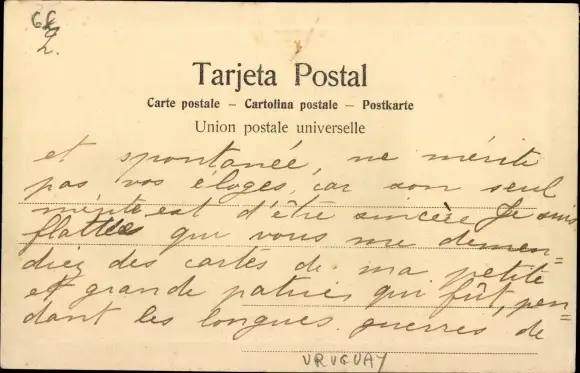 66
2.
Tarjeta Postal
Carte postale – Cartolina postale – Postkarte
Union postale universelle
et spontanée, ne mérite
pas vos éloges, car son seul
mérite est d'être sincère Je suis
flattée que vous me demen=
diez des cartes de ma petite
et grande patrie, qui fût, pen=
dant les longues guerres de
URUGUAY